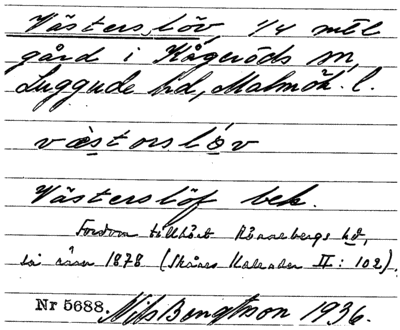 Västerslöv, 1/4 mtl
gård i Kågeröds sn,
Luggude hd, Malmöh. l.
væstorsløv
Västerslöf bek.
Fordom tillhört Rönnebergs hd,
1878 (Skånes Kalender II: 102).
Nr 5688. Nils Bengtsson 1936.